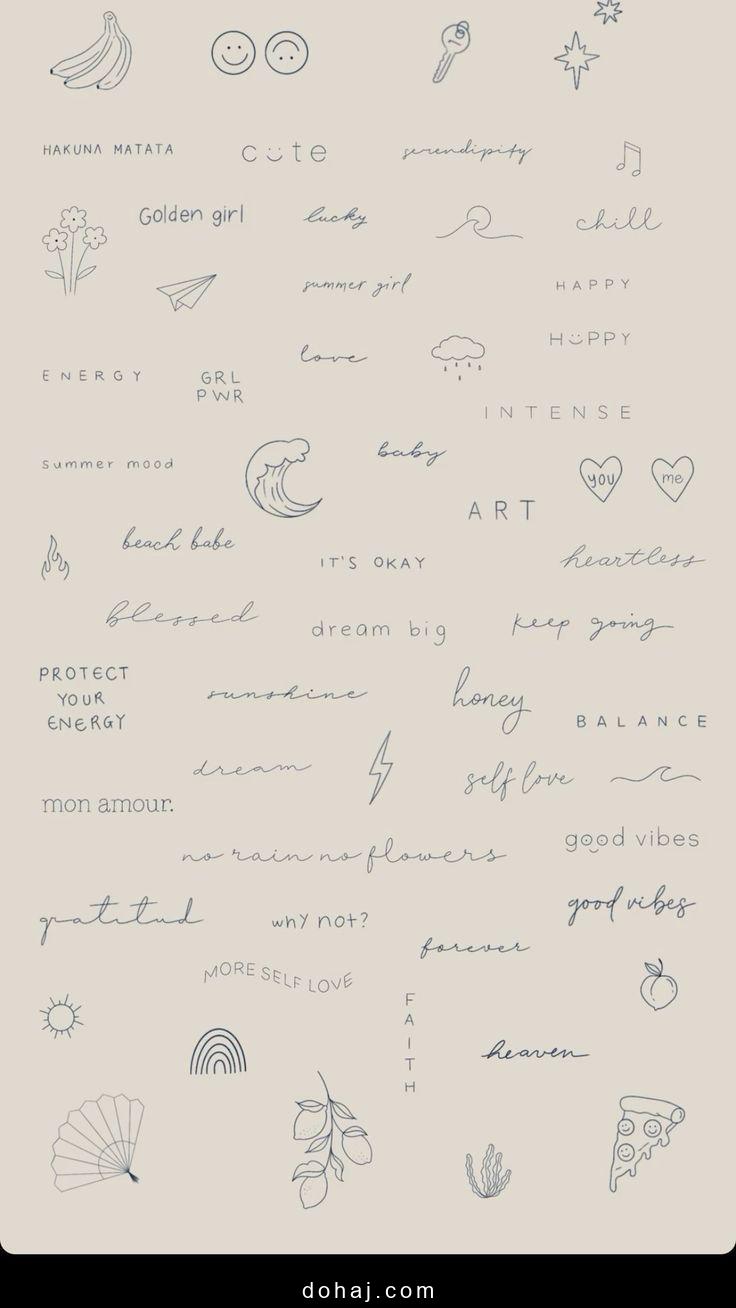 HAKUNA MATATA
cute
serendipity
Golden girl
lucky
chill
summer girl
HAPPY
HAPPY
love
ENERGY
GRL
PWR
INTENSE
summer mood
baby
you
me
ART
beach babe
IT'S OKAY
heartless
blessed
dream big
keep going
PROTECT
YOUR
ENERGY
sunshine
honey
BALANCE
dream
self love
mon amour.
no rain no flowers
good vibes
gratitud
why not?
good vibes
forever
MORE SELF LOVE
FAITH
heaven
dohaj.com